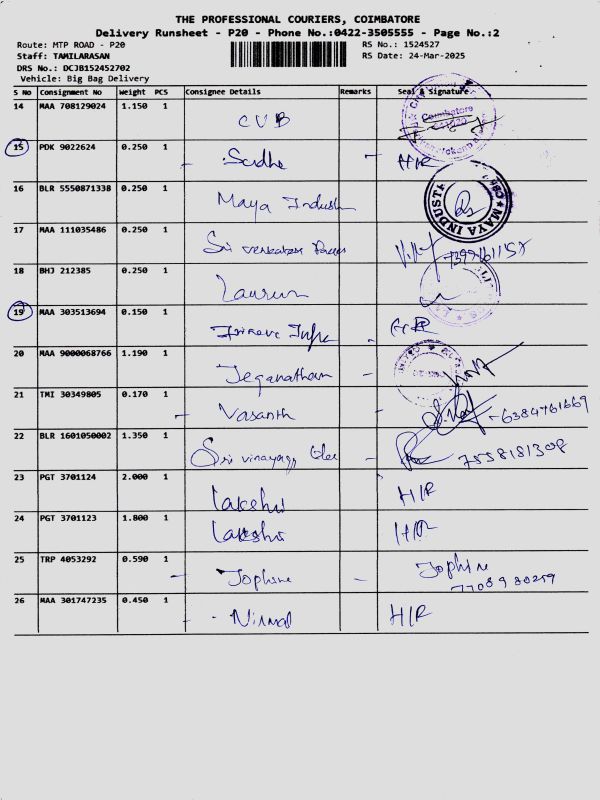 THE PROFESSIONAL COURIERS, COIMBATORE
Delivery Runsheet - P20 - Phone No.:0422-3505555 - Page No.:2
Route: MTP ROAD - P20 RS No.: 1524527
Staff: TAMILARASAN RS Date: 24-Mar-2025
DRS No.: DCJB152452702
Vehicle: Big Bag Delivery
S No Consignment No Weight PCS Consignee Details Remarks Seal & Signature
14 MAA 708129024 1.150 1 CUB Coimbatore
15 PDK 9022624 0.250 1 Sudha H/R
16 BLR 5550871338 0.250 1 Maya Industr MAYA INDUST
17 MAA 111035486 0.250 1 Sri venkatesa
18 BHJ 212385 0.250 1
19 MAA 303513694 0.150 1 Infra
20 MAA 9000068766 1.190 1 Jeganatham
21 TMI 30349805 0.170 1 Vasanth 6384761669
22 BLR 1601050002 1.350 1 Sri vinayaga 7558181308
23 PGT 3701124 2.000 1 Lakshmi H/R
24 PGT 3701123 1.800 1 Lakshmi H/R
25 TRP 4053292 0.590 1 Jophine Jophine
7708980259
26 MAA 301747235 0.450 1 Nirmal H/R